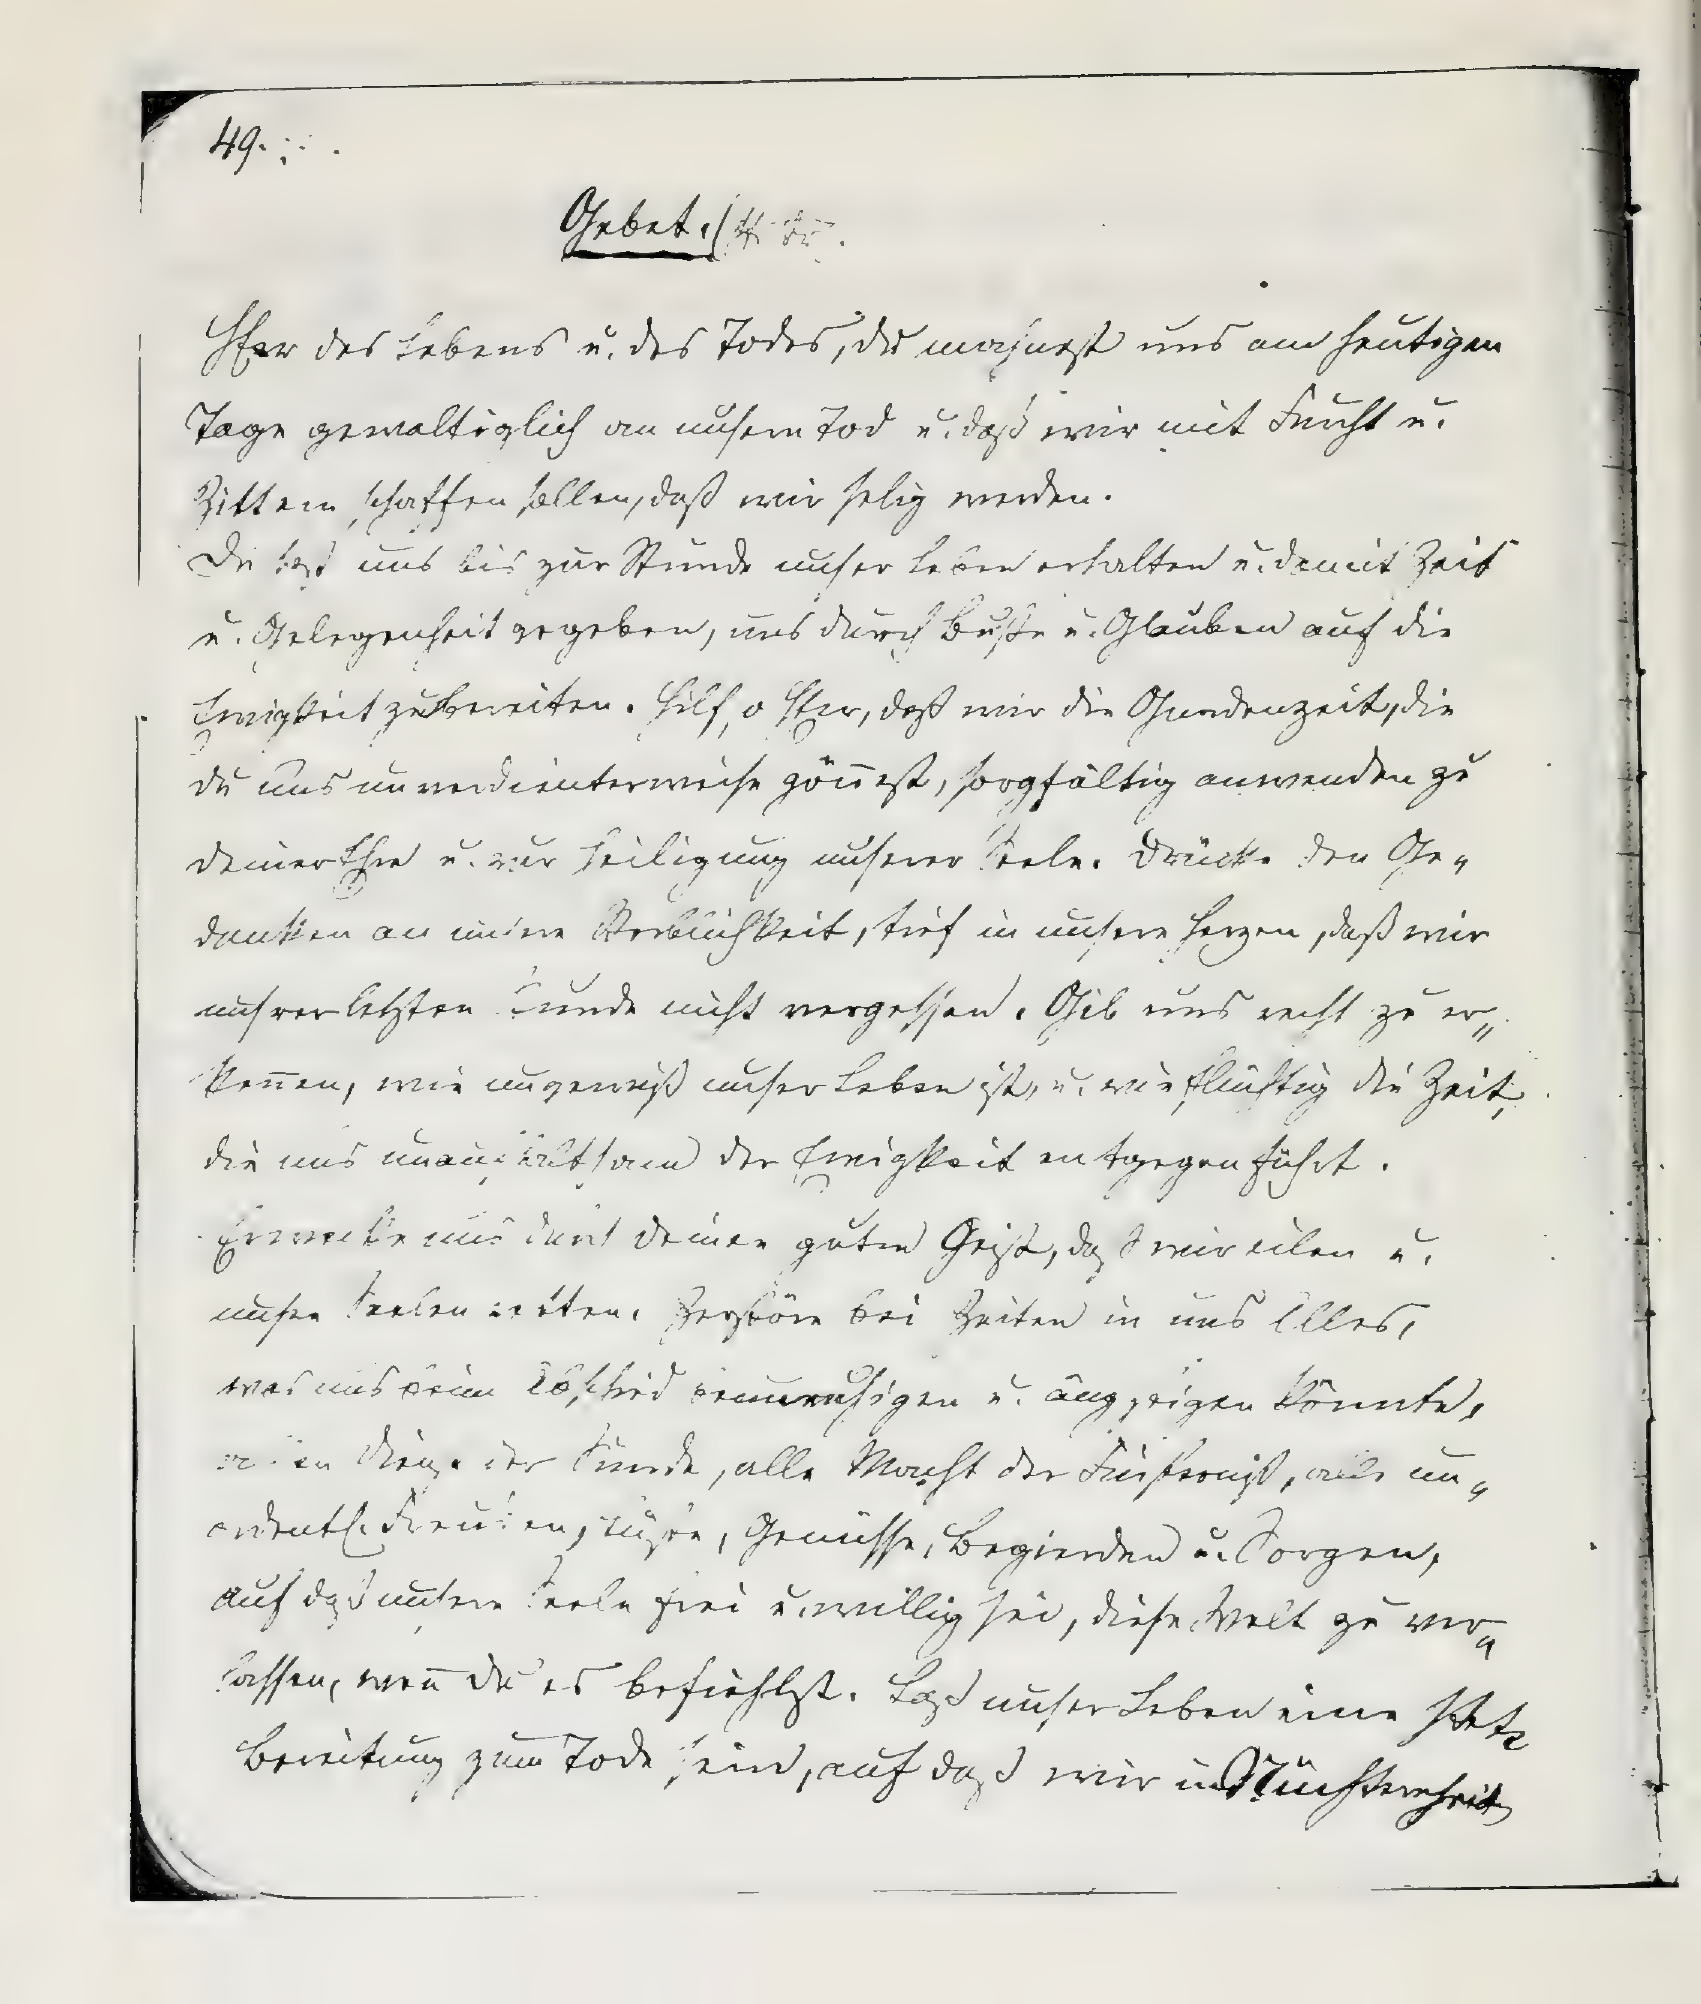 49.
Gebet.
HErr des Lebens u. des Todes, du mahnest uns am heutigen
Tage gewaltiglich an unsern Tod u. daß wir mit Furcht u.
Zittern schaffen sollen, daß wir selig werden.
Du hast uns bis zur Stunde unser Leben erhalten u. damit Zeit
u. Gelegenheit gegeben, uns durch Buße u. Glauben auf die
Ewigkeit zu bereiten. Hilf, o HErr, daß wir die Gnadenzeit, die
du uns unverdienterweise gön̄est, sorgfältig anwenden zu
deiner Ehre u. zur Heiligung unserer Seele. Drücke den Ge„
danken an unsere Sterblichkeit, tief in unsere Herzen, daß wir
unsrer letzten Stunde nicht vergessen. Gib uns recht zu er„
ken̄en, wie ungewiß unser Leben ist, u. wie flüchtig die Zeit,
die uns unaufhaltsam der Ewigkeit entgegen führt.
Erwecke uns durch deinen guten Geist, daß wir eilen u.
unsre Seelen retten. Zerstöre bei Zeiten in uns Alles,
was uns beim Abschied beunruhigen u. ängstigen könnte,
der Sünde, alle Macht der Finsterniß, alle un„
ordentl. Freuden, Lüste, Genüsse, Begierden u. Sorgen,
auf daß unsere Seele frei u. willig sei, diese Welt zu ver„
lassen, wen̄ du es befiehlst. Laß unser Leben eine stete
Bereitung zum Tode sein, auf daß wir in Nüchternheit